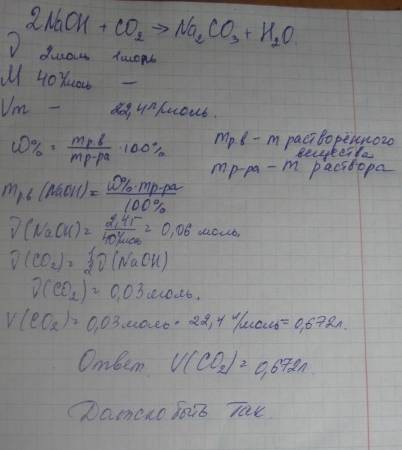 2NaOH + CO₂ → Na₂CO₃ + H₂O.
ν 2моль 1моль
M 40г/моль –
Vm – 22,4л/моль.
ω% = mр.в / mр-ра · 100%
mр.в – m растворённого вещества
mр-ра – m раствора
mр.в (NaOH) = ω% · mр-ра / 100%
ν(NaOH) = 2,4г / 40г/моль = 0,06 моль.
ν(CO₂) = ½ν(NaOH)
ν(CO₂) = 0,03 моль.
V(CO₂) = 0,03 моль · 22,4 л/моль = 0,672л.
Ответ V(CO₂) = 0,672л.
Должно быть так.